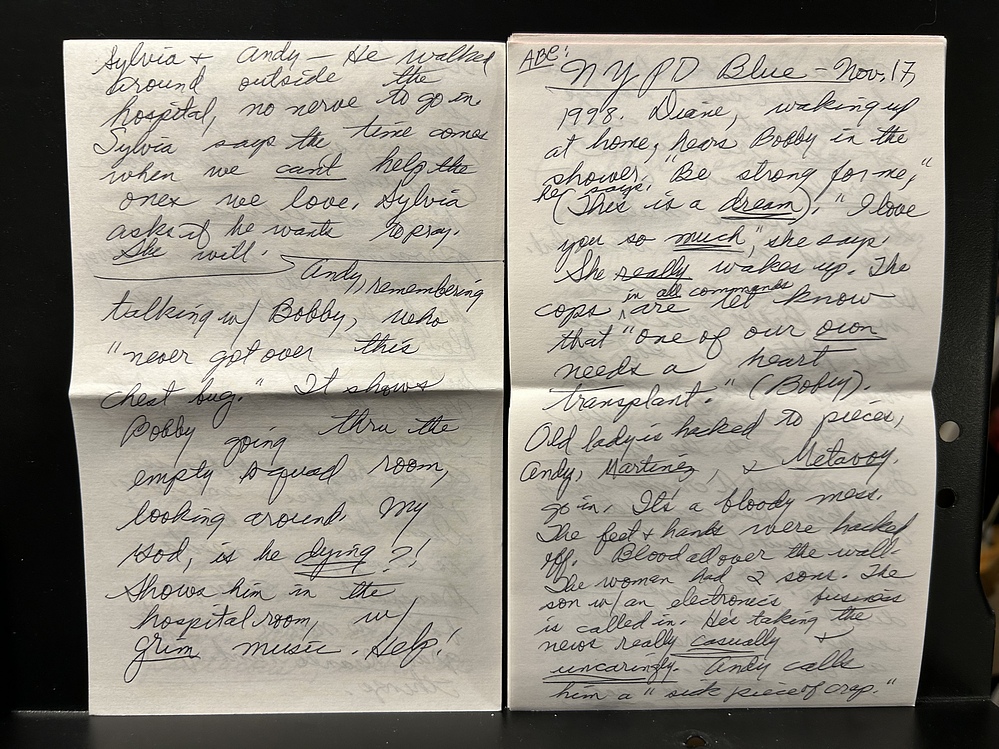 Sylvia + Andy - He walked
around outside the
hospital, no nerve to go in.
Sylvia says the time comes
when we can't help the
ones we love. Sylvia
asks if he wants to pray.
She will.
Andy, remembering
talking w/ Bobby, who
"never got over this
chest bug." It shows
Bobby going thru the
empty squad room,
looking around. My
God, is he dying?!
Shows him in the
hospital room, w/
grim music. Help!
ABC:
NYPD Blue - Nov. 17,
1998. Diane, waking up
at home, hears Bobby in the
shower. "Be strong for me,"
he says.
(This is a dream). "I love
you so much," she says.
She really wakes up. The
in all commands
cops are let know
that "one of our own
needs a heart
transplant." (Bobby).
Old lady is hacked to pieces,
Andy, Martinez, & Metavoy,
go in. It's a bloody mess.
The feet + hands were hacked
off. Blood all over the wall.
The woman had 2 sons. The
son w/ an electronics business
is called in. He's taking the
news really casually +
uncaringly. Andy calls
him a "sick piece of crap."